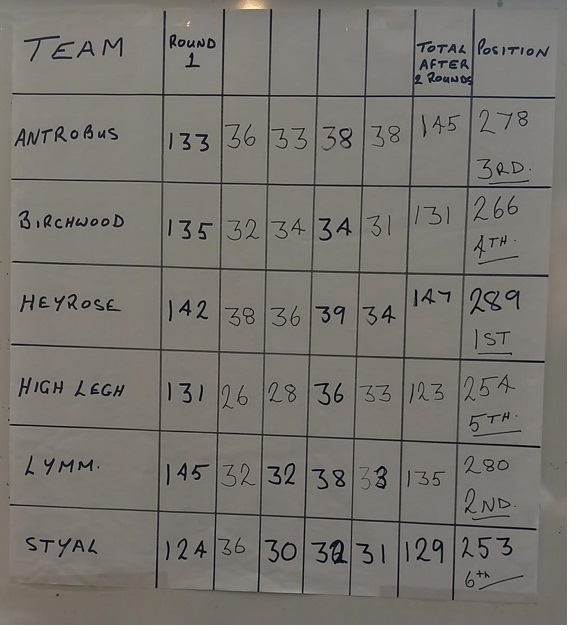 TEAM ROUND 1 TOTAL AFTER 2 ROUNDS POSITION
ANTROBUS 133 36 33 38 38 145 278 3RD.
BIRCHWOOD 135 32 34 34 31 131 266 4TH.
HEYROSE 142 38 36 39 34 147 289 1ST
HIGH LEGH 131 26 28 36 33 123 254 5TH.
LYMM. 145 32 32 38 33 135 280 2ND.
STYAL 124 36 30 32 31 129 253 6th